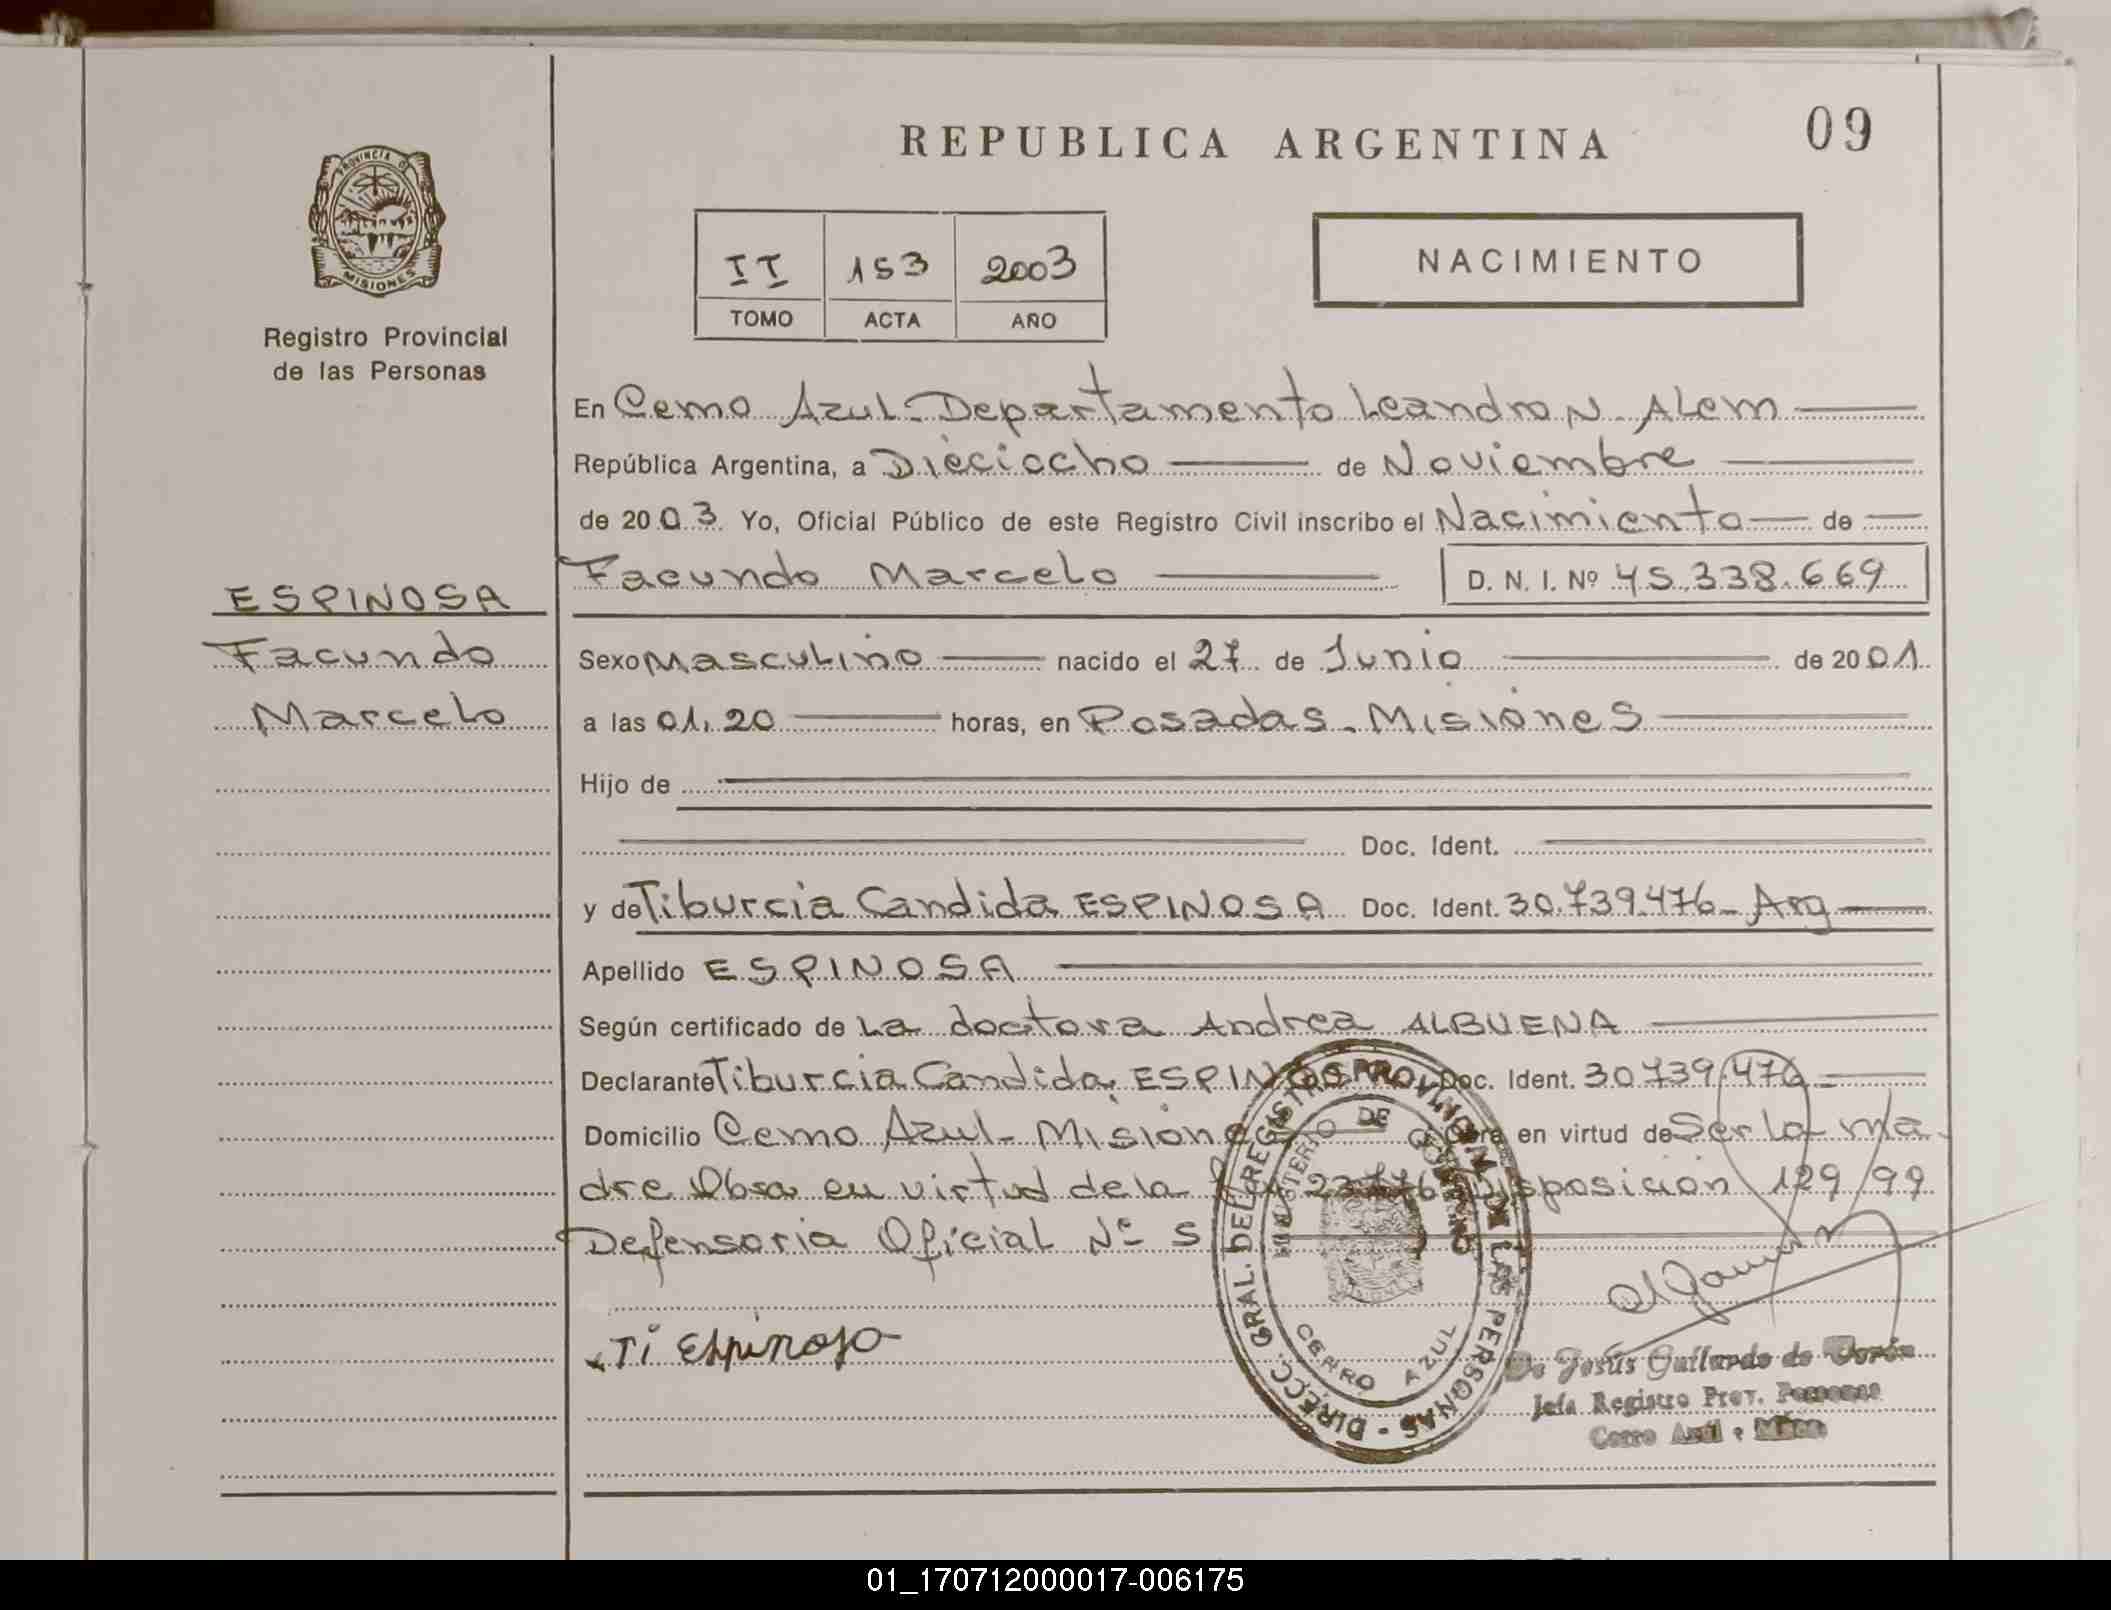 REPUBLICA ARGENTINA
09
PROVINCIA DE
MISIONES
Registro Provincial
de las Personas
II 153 2003
TOMO ACTA AÑO
NACIMIENTO
En Cerro Azul - Departamento Leandro N. Alem
República Argentina, a Dieciocho de Noviembre
de 2003 Yo, Oficial Público de este Registro Civil inscribo el Nacimiento de
Facundo Marcelo D. N. I. Nº 45.338.669
ESPINOSA
Facundo
Marcelo
Sexo Masculino nacido el 27 de Junio de 2001
a las 01,20 horas, en Posadas - Misiones
Hijo de
Doc. Ident.
y de Tiburcia Candida ESPINOSA Doc. Ident. 30.739.476 - Arg
Apellido ESPINOSA
Según certificado de La doctora Andrea ALBUENA
Declarante Tiburcia Candida ESPINOSA Doc. Ident. 30739.476
Domicilio Cerro Azul - Misiones Obra en virtud de Ser la ma-
dre Obsa en virtud de la Disposición 129/99
Defensoria Oficial Nº 5
DIRECC. GRAL. DEL REGISTRO PROVINCIAL DE LAS PERSONAS -
MINISTERIO DE GOBIERNO
CERRO AZUL
Ti Espinosa
De Jesús Gallardo de
Jefa Registro Prov. Personas
Cerro Azul - Mnes
01_170712000017-006175